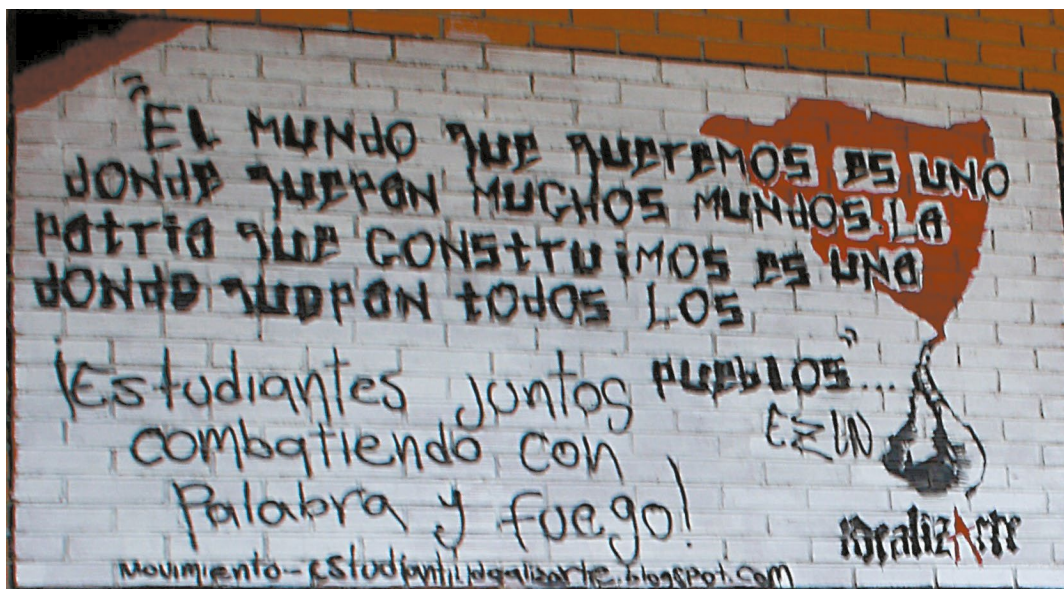 "EL MUNdO qUE qUEREMOS ES UNO
dONdE qUEPAN MUCHOS MUNdOS.LA
PAtRiA qUE CONStRUiMOS ES UNA
dONdE qUEPAN tOdOS LOS
PUEbLOS"...
EZLN
¡Estudiantes juntos
combatiendo con
Palabra y fuego!
IdealizArte
Movimiento-Estudiantilidealizarte.blogspot.com